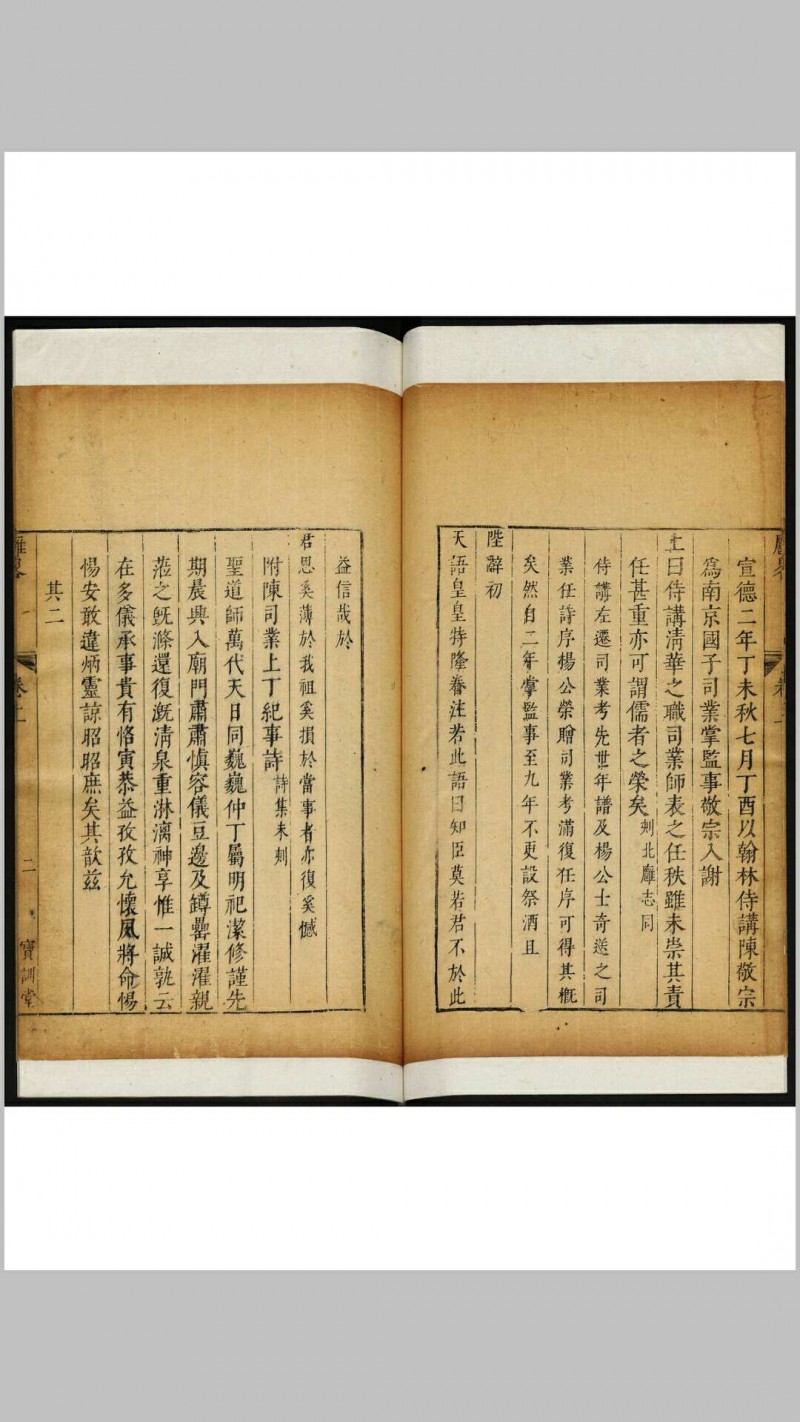 宣德二年丁未秋七月丁酉以翰林侍講陳敬宗
爲南京國子司業掌監事敬宗入謝
上曰侍講清華之職司業師表之任秩雖未崇其責
任甚重亦可謂儒者之榮矣刺北廱志同
侍講左遷司業考先世年譜及楊公士奇送之司
業任詩序楊公榮贈司業考滿復任序可得其概
矣然自二年掌監事至九年不更設祭酒且
陛辭初
天語皇皇特隆眷注若此語曰知臣莫若君不於此
益信哉於
君恩奚薄於我祖奚損於當事者亦復奚憾
附陳司業上丁紀事詩詩集未刻
聖道師萬代天日同巍巍仲丁屬明祀潔修謹先
期晨興入廟門肅肅慎容儀豆籩及罇罍濯濯親
涖之旣滌還復漑清泉重淋漓神享惟一誠孰云
在多儀承事貴有恪寅恭益孜孜允懷風將命惕
惕安敢違炳靈諒昭昭庶矣其歆茲
其二
二
寶訓堂